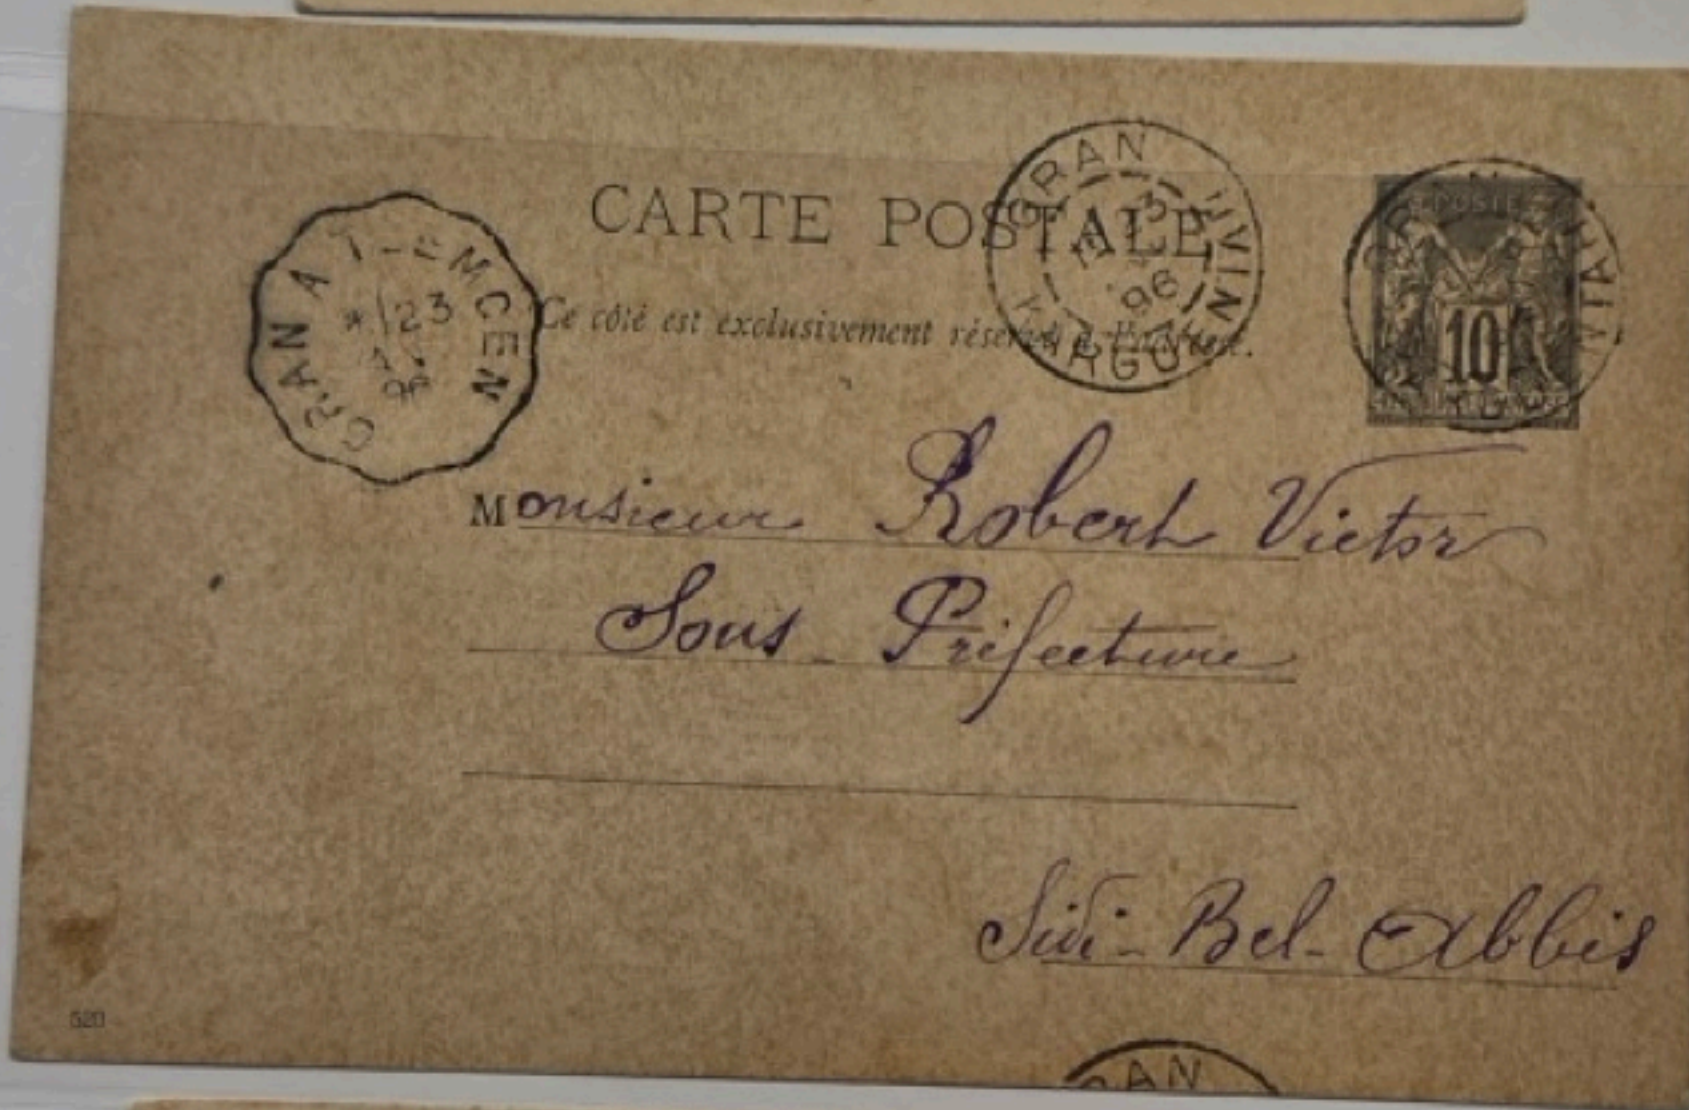 CARTE POSTALE
Ce côté est exclusivement réservé à l'adresse.
ORAN A TLEMCEN
23
96
ORAN
96
POSTE
10
Monsieur Robert Victor
Sous - Préfecture
Sidi-Bel-Abbès
520
RAN